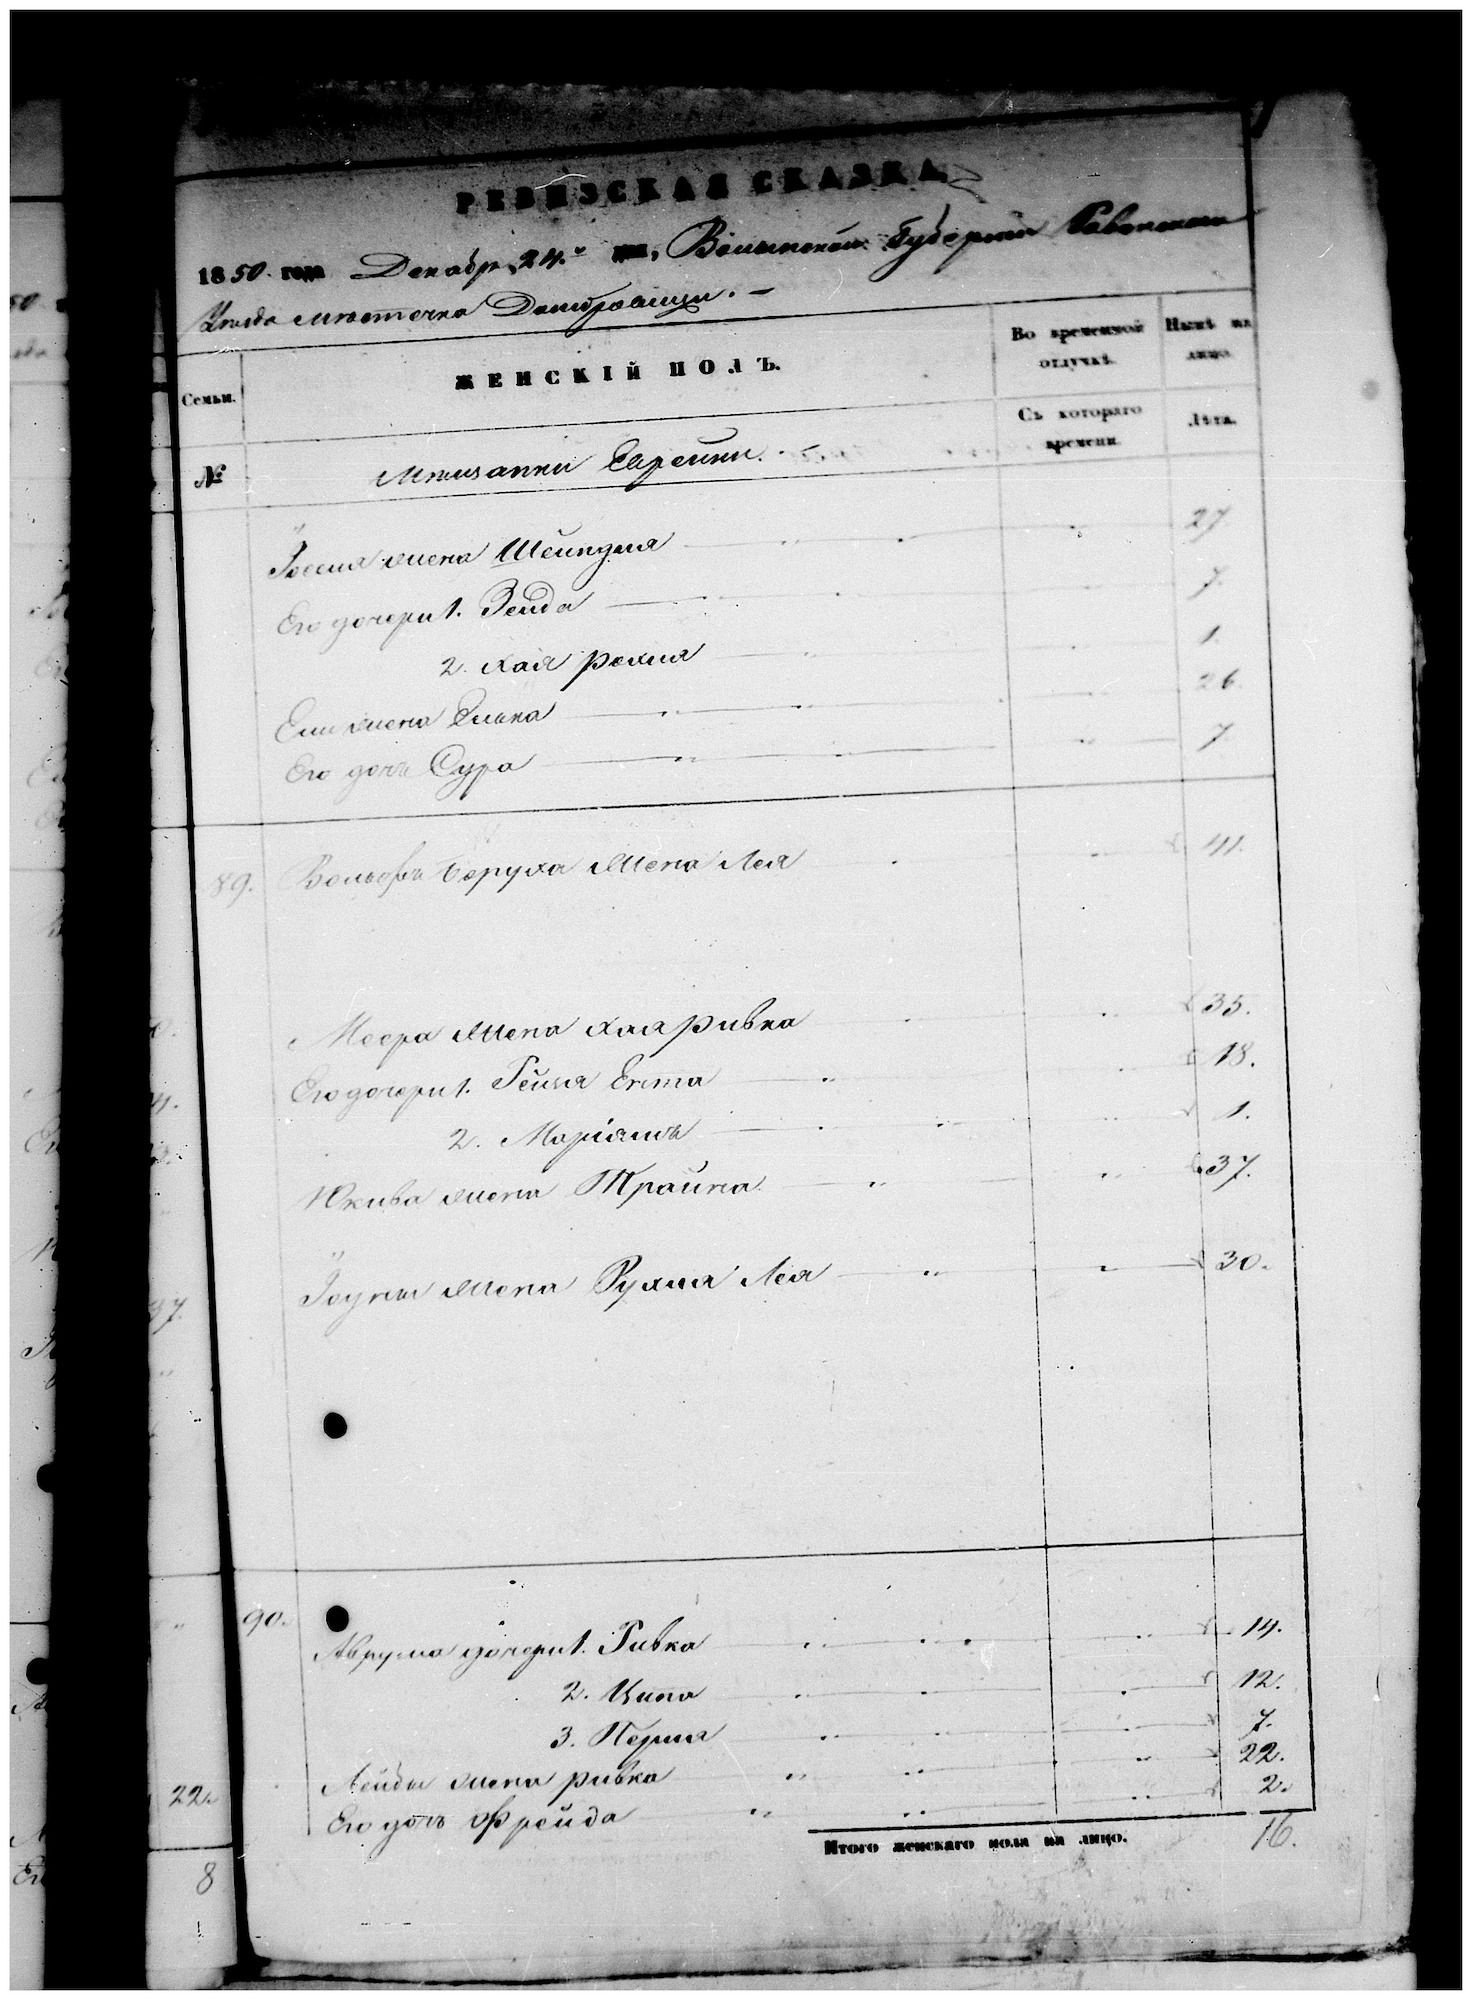 РЕВИЗСКАЯ СКАЗКА
1850. года Декабр. 24.го дня, Волынской Губернии Ровенского
Уѣзда мѣстечка Домбровицы. —
Семьи.
ЖЕНСКІЙ ПОЛЪ.
Во временной отлучкѣ.
Нынѣ на лицо.
№
Мѣщанки Еврейки. —
Съ котораго времени.
Лѣта.
Іосия жена Шейндля 27
Его дочери 1. Зелда 7.
2. Хая рохля 1.
жена Элька 26.
Его дочь Сура 7
89. Вольфъ Боруха жена Лея 41.
Меера жена Хая ривка 35.
Его дочери 1. Рейзя Ента 18.
2. Маріямъ 1.
жена Трайна 37.
жена Рухля Лея 30.
90.
Аврума дочери 1. Ривка 14.
2. Ципа 12.
3. Перля 7.
Лейбы жена ривка 22.
Его дочь Фрейда 2.
Итого женскаго пола на лицо. 16.
22.
8